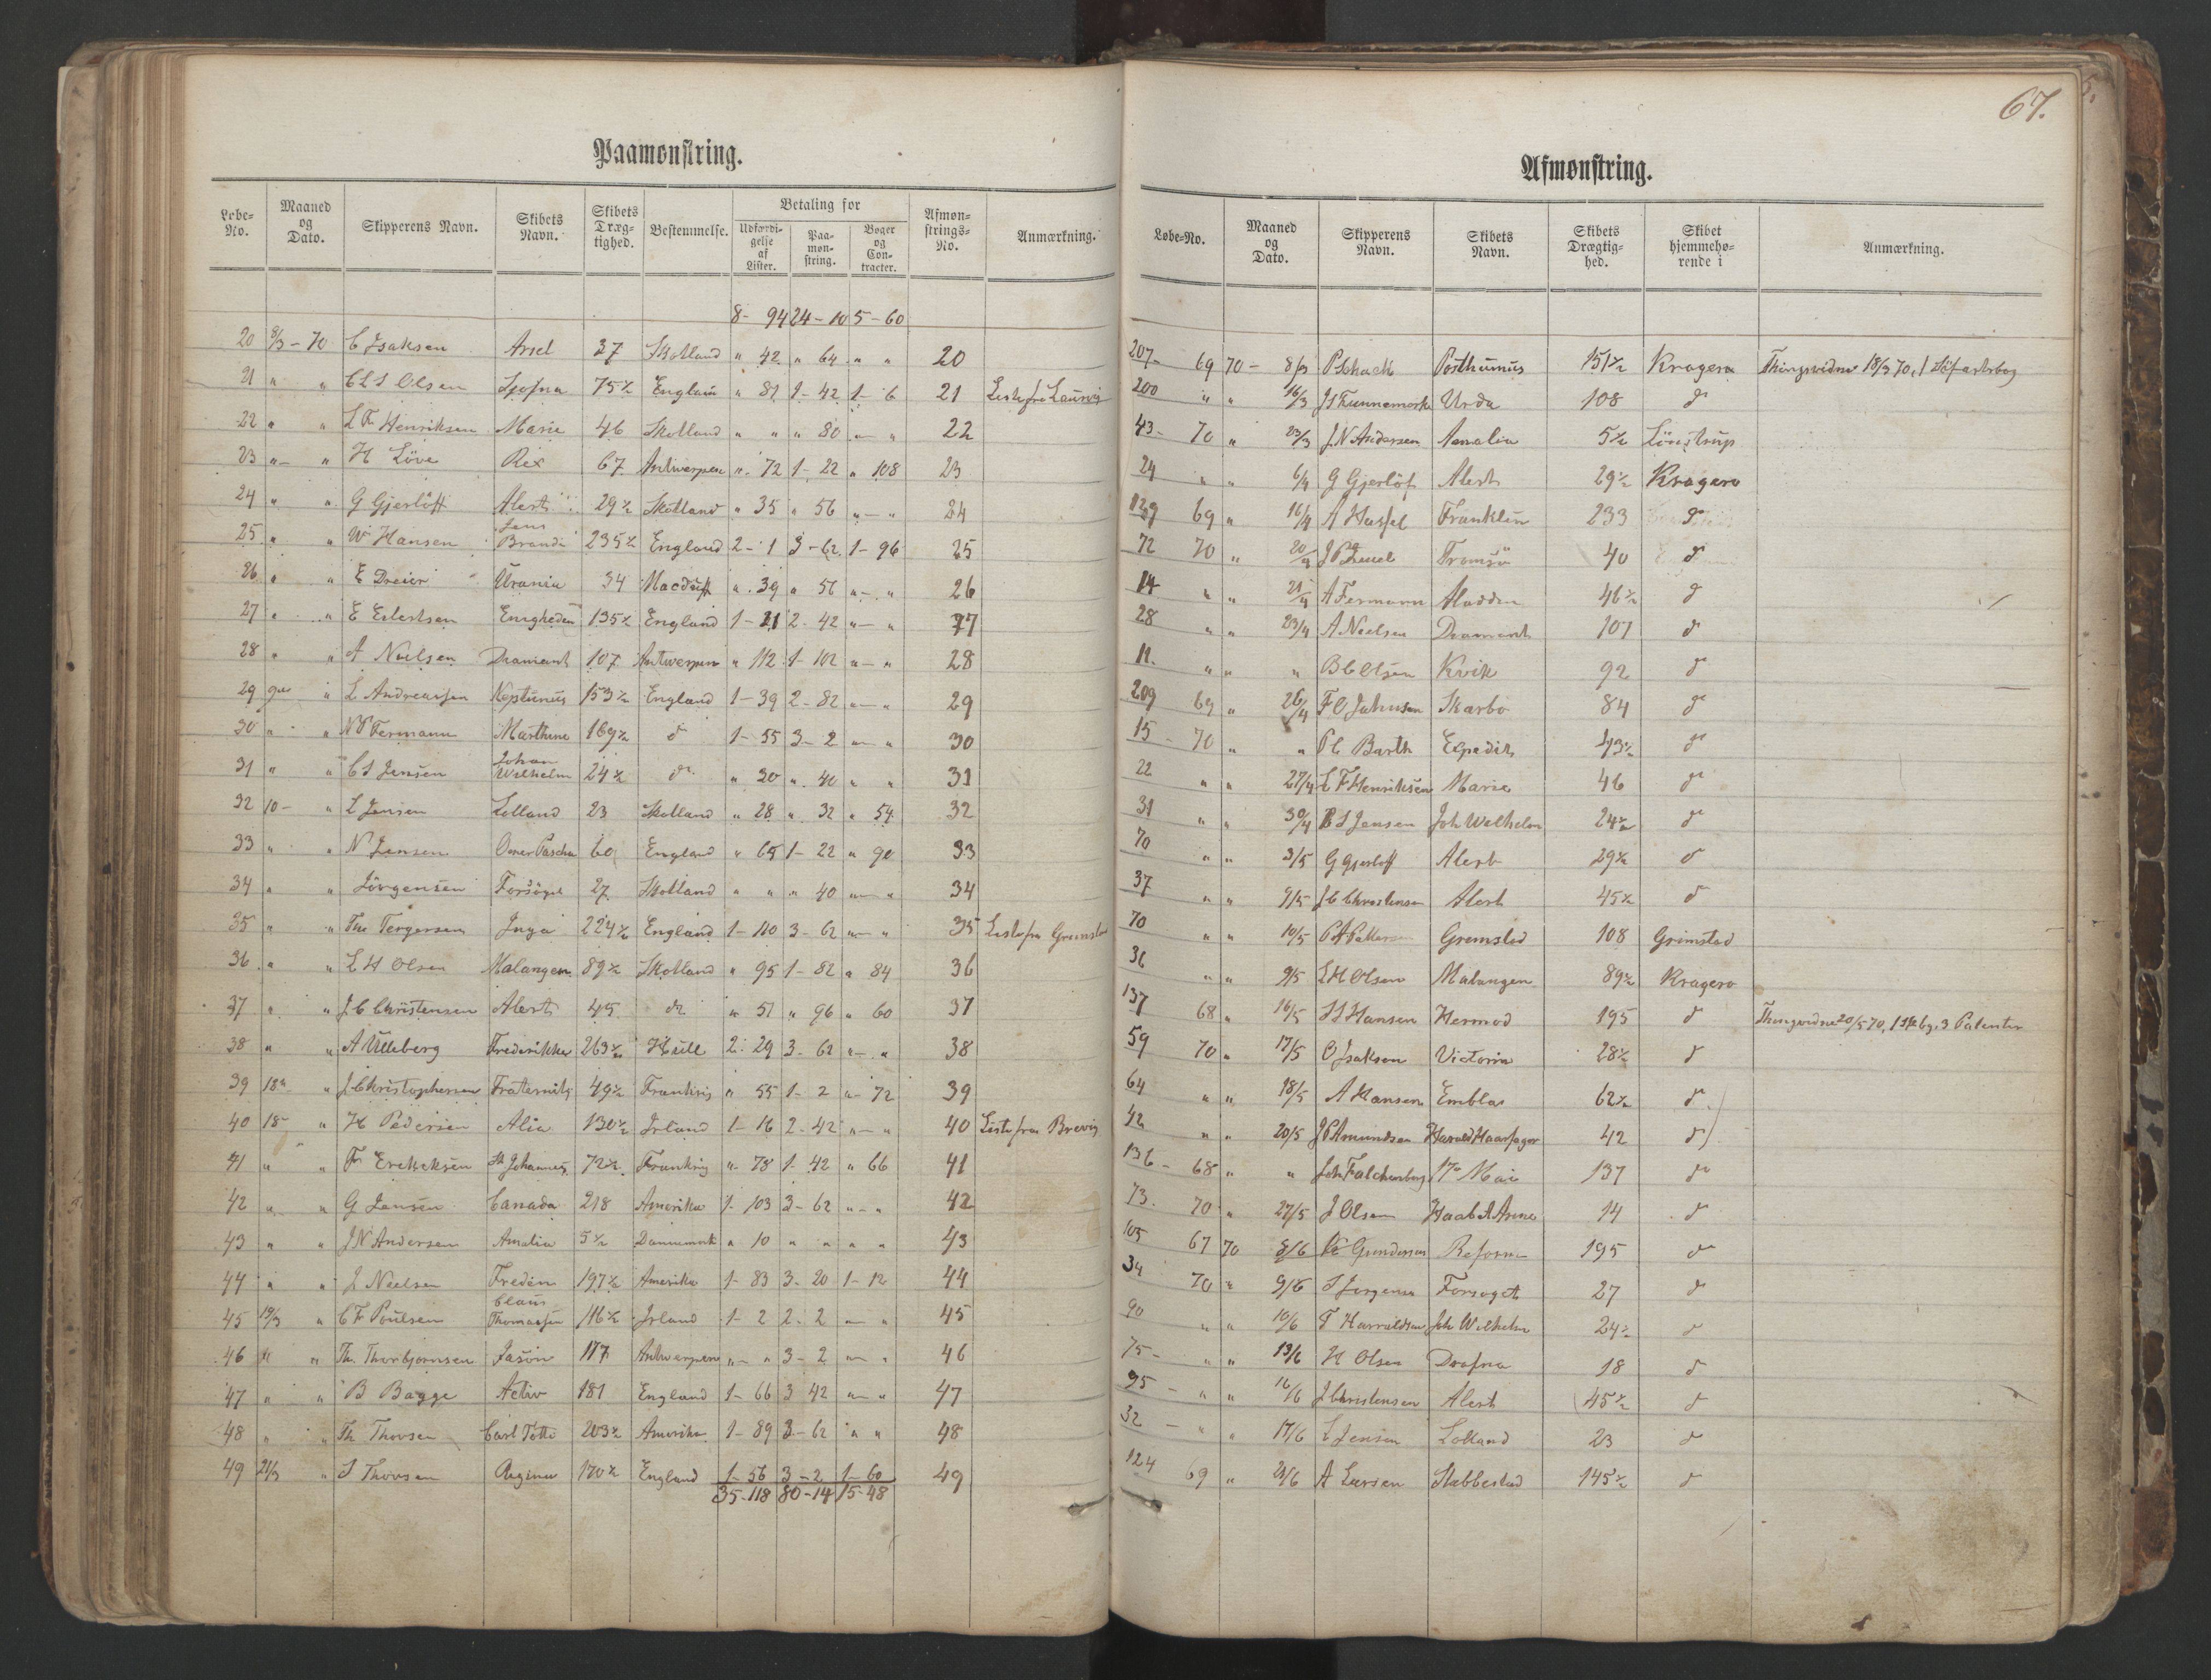 67.
Paamønstring.
Løbe-No. Maaned og Dato. Skipperens Navn. Skibets Navn. Skibets Dræg-tighed. Bestemmelse. Betaling for Udfærdi-gelse af Lister. Paa-møn-string. Bøger og Con-tracter. Afmøn-strings-No. Anmærkning.
8- 94 24-10 5-60
20 8/3-70 C Isaksen Arsel 37 Skotland " 42 " 64 " " 20
21 " " Olsen 75½ England " 81 1-42 1-6 21 Liste fra Laurvig
22 " " L F Henriksen Marie 46 Skotland " " " 80 " " 22
23 " " H Löve Rex 67 Antwerpen " 72 1-22 " 108 23
24 " " G Gjerlöff Alert 29½ Skotland " 35 " 56 " " 24
25 " " W Hansen Jens Brandi 235½ England 2-1 3-62 1-96 25
26 " " E Dreier Urania 34 Macduff " 39 " 56 " " 26
27 " " E Eilertsen Enigheden 135½ England 1-21 2-42 " " 27
28 " " A Nielsen Diamant 107 Antwerpen " 112 1-102 " " 28
29 " L Andreassen Neptunus 153½ England 1-39 2-82 " " 29
30 " " N P Fermann Marthine 169½ d 1-55 3-2 " " 30
31 " " C S Jensen Johan Wilhelm 24½ do " 20 " 40 " " 31
32 10- " L Jensen Lolland 23 Skotland " 28 " 32 " 54 32
33 " " N Jensen Omer Pascha 60 England " 65 1-22 " 90 33
34 " " Jörgensen Forsöget 27 Skotland " " " 40 " " 34
35 " " Ths Tergersen Inga 224½ England 1-110 3-62 " " 35 Liste fra Grimstad
36 " " L H Olsen Malangen 89½ Skotland " 95 1-82 " 84 36
37 " " J C Christensen Alert 45 do " 51 " 96 " 60 37
38 " " A Ulleberg Frederikke 263½ Hull 2-29 3-62 " " 38
39 18 " J Christophersen Fraternité 49½ Frankrig " 55 1-2 " 72 39
40 18- " H Pedersen Alia 130½ Irland 1-16 2-42 " " 40 Liste fra Brevig
41 " " Fr Ericksen St Johannes 72½ Frankrig " 78 1-42 " 66 41
42 " " G Jensen Canada 218 Amerika 1-103 3-62 " " 42
43 " " J N Andersen Amalia 5½ Dannemark " 10 " " " " 43
44 " " J Nielsen Freden 197½ Amerika 1-83 3-20 1-12 44
45 19/3 " C F Poulsen Claus Thomassen 116½ Irland 1-2 2-2 " " 45
46 " " Th. Thorbjornsen Jason 117 Antwerpen " " 3-2 " " 46
47 " " B Bagge Activ 181 England 1-66 3 42 " " 47
48 " " Th Thovsen Carl Totti 203½ Amerika 1-89 3-62 " " 48
49 21/3 " S Thovsen Regina 170½ England 1-56 3-2 1-60 49
35-118 80-14 15-48
Afmønstring.
Løbe-No. Maaned og Dato. Skipperens Navn. Skibets Navn. Skibets Drægtig-hed. Skibet hjemmehø-rende i Anmærkning.
207- 69 70- 8/3 P Schach Posthumus 151½ Kragerø Thingsvidne 18/3 70, 1 Söfartsbog
200 " " 16/3 J S Tunnemork Urda 108 do
43- 70 " 23/3 J. N Andersen Amalia 5½ Lönstrup
24 " " 6/4 G Gjerlöf Alert 29½ Kragerø
69 " 16/4 A Hassel Franklin 233 d
72 70 " 20/4 Tromsö 40 d
14 " " 21/4 A Fermann Aladdin 46½ d
28 " " 23/4 A Nielsen Diamant 107 d
11. " " " B C Olsen Kvik 92 d
209 69 " 26/4 F C Johnsen Skarbo 84 do
15- 70 " " P C Barth Expedit 43½ do
22 " " 27/4 L F Henriksen Marie 46 do
31 " " 30/4 C S Jensen Joh Wilhelm 24½ do
70 " " 3/5 G Gjerløff Alert 29½ d
37 " " 9/5 J C Christensen Alert 45½ d
70 " " 10/5 Grimstad 108 Grimstad
36 " " 9/5 L H Olsen Malangen 89½ Kragerø
137 68 " 16/5 S S Hansen Hermod 195 d Thingvidne 20/5 70, 3 Patenter
59 70 " 17/5 O Isaksen Victoria 28½ d
64 " " 18/5 A Hansen Embla 62½ d
42 " " 20/5 J P Amundsen Harald Haarfager 42 d
136- 68 " " Joh Falchenberg 17 Mai 137 do
73. 70 " 27/5 J Olsen Haabet Anne 14 d
105 67 70 8/6 Gundersen Reform 195 d
34 70 " 9/6 S Jørgensen Forsøget 27 d
90 " " 10/6 T Harraldsen Joh Wilhelm 24½ d
75- " " 13/6 H Olsen Drafna 18 d
95- " " 16/6 J Christensen Alert 45½ d
32- " " 17/6 L Jensen Lolland 23 d
124 69 " 21/6 A Larsen Stabbestad 145½ d